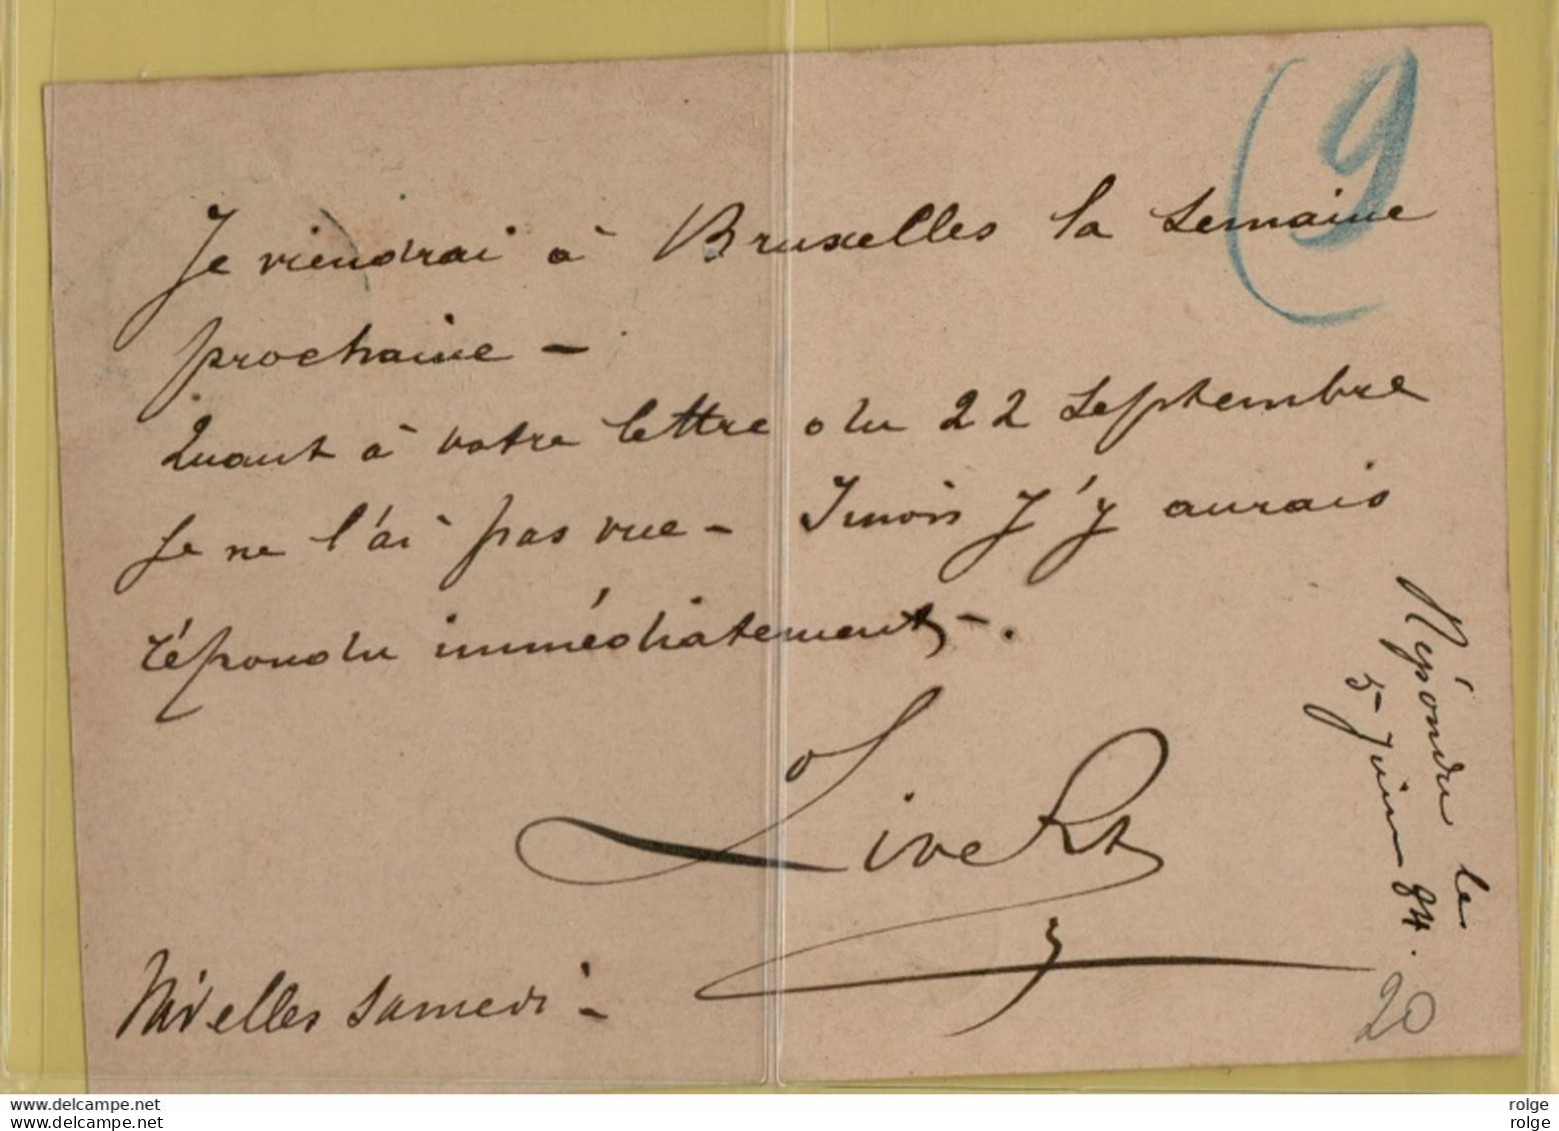 9
Je viendrai à Bruxelles la semaine
prochaine –
Quant à votre lettre du 22 Septembre
je ne l'ai pas vue – Sinon j'y aurais
répondu immédiatement –.
Nivelles Samedi –
Répondu le
5 Juin 84.
20
delcampe.net
delcampe.net
rolge
rolge